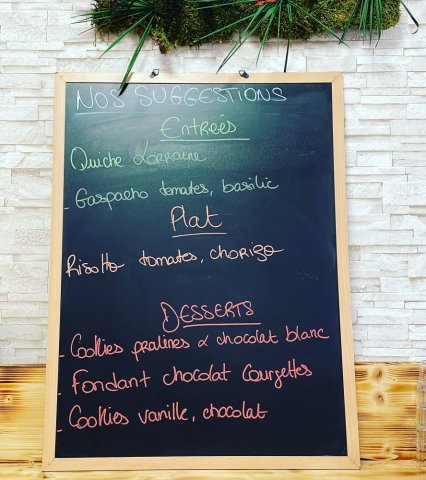 NOS SUGGESTIONS
Entrées
Quiche Lorraine
- Gaspacho tomates, basilic
Plat
Risotto tomates, chorizo
DESSERTS
- Cookies pralines & chocolat blanc
- Fondant chocolat courgettes
- Cookies vanille, chocolat